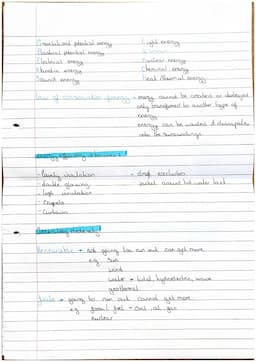 Gravitational potential energy
Elastical potential energy
Electrical energy
Kinetic energy
Sound energy
Light energy
Nuclear energy
Chemical energy
Heat/thermal energy
Law of conservation of energy - energy cannot be created or destroyed
only transformed to another type of
energy
energy can be wasted & dissipated
into the surroundings
- cavity insulation
- double glazing
- loft insulation
- Carpets
- Curtains
- draft excluders
jacket around hot water tank
Renewable - not going to run out can get more
eg. sun
wind
water - tidal, hydroelectric, wave
geothermal
going to run out cannot get more
eg fossil fuel - coal, oil, gas
nuclear